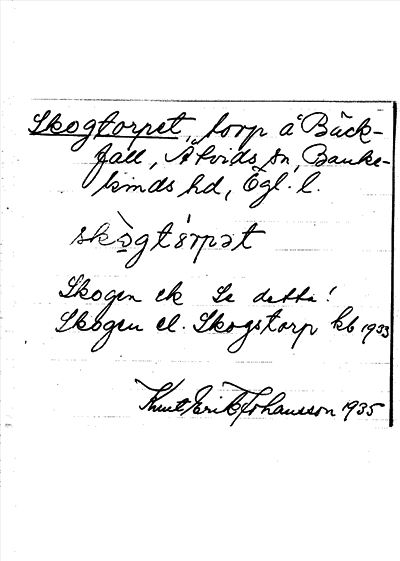 Skogtorpet, torp å Bäck-
fall, Åtvids sn, Banke-
kinds hd, Ögl. l.
skògtórpət
Skogen ek Se detta!
Skogen el. Skogstorp kb 1933
Knut Erik Johansson 1935